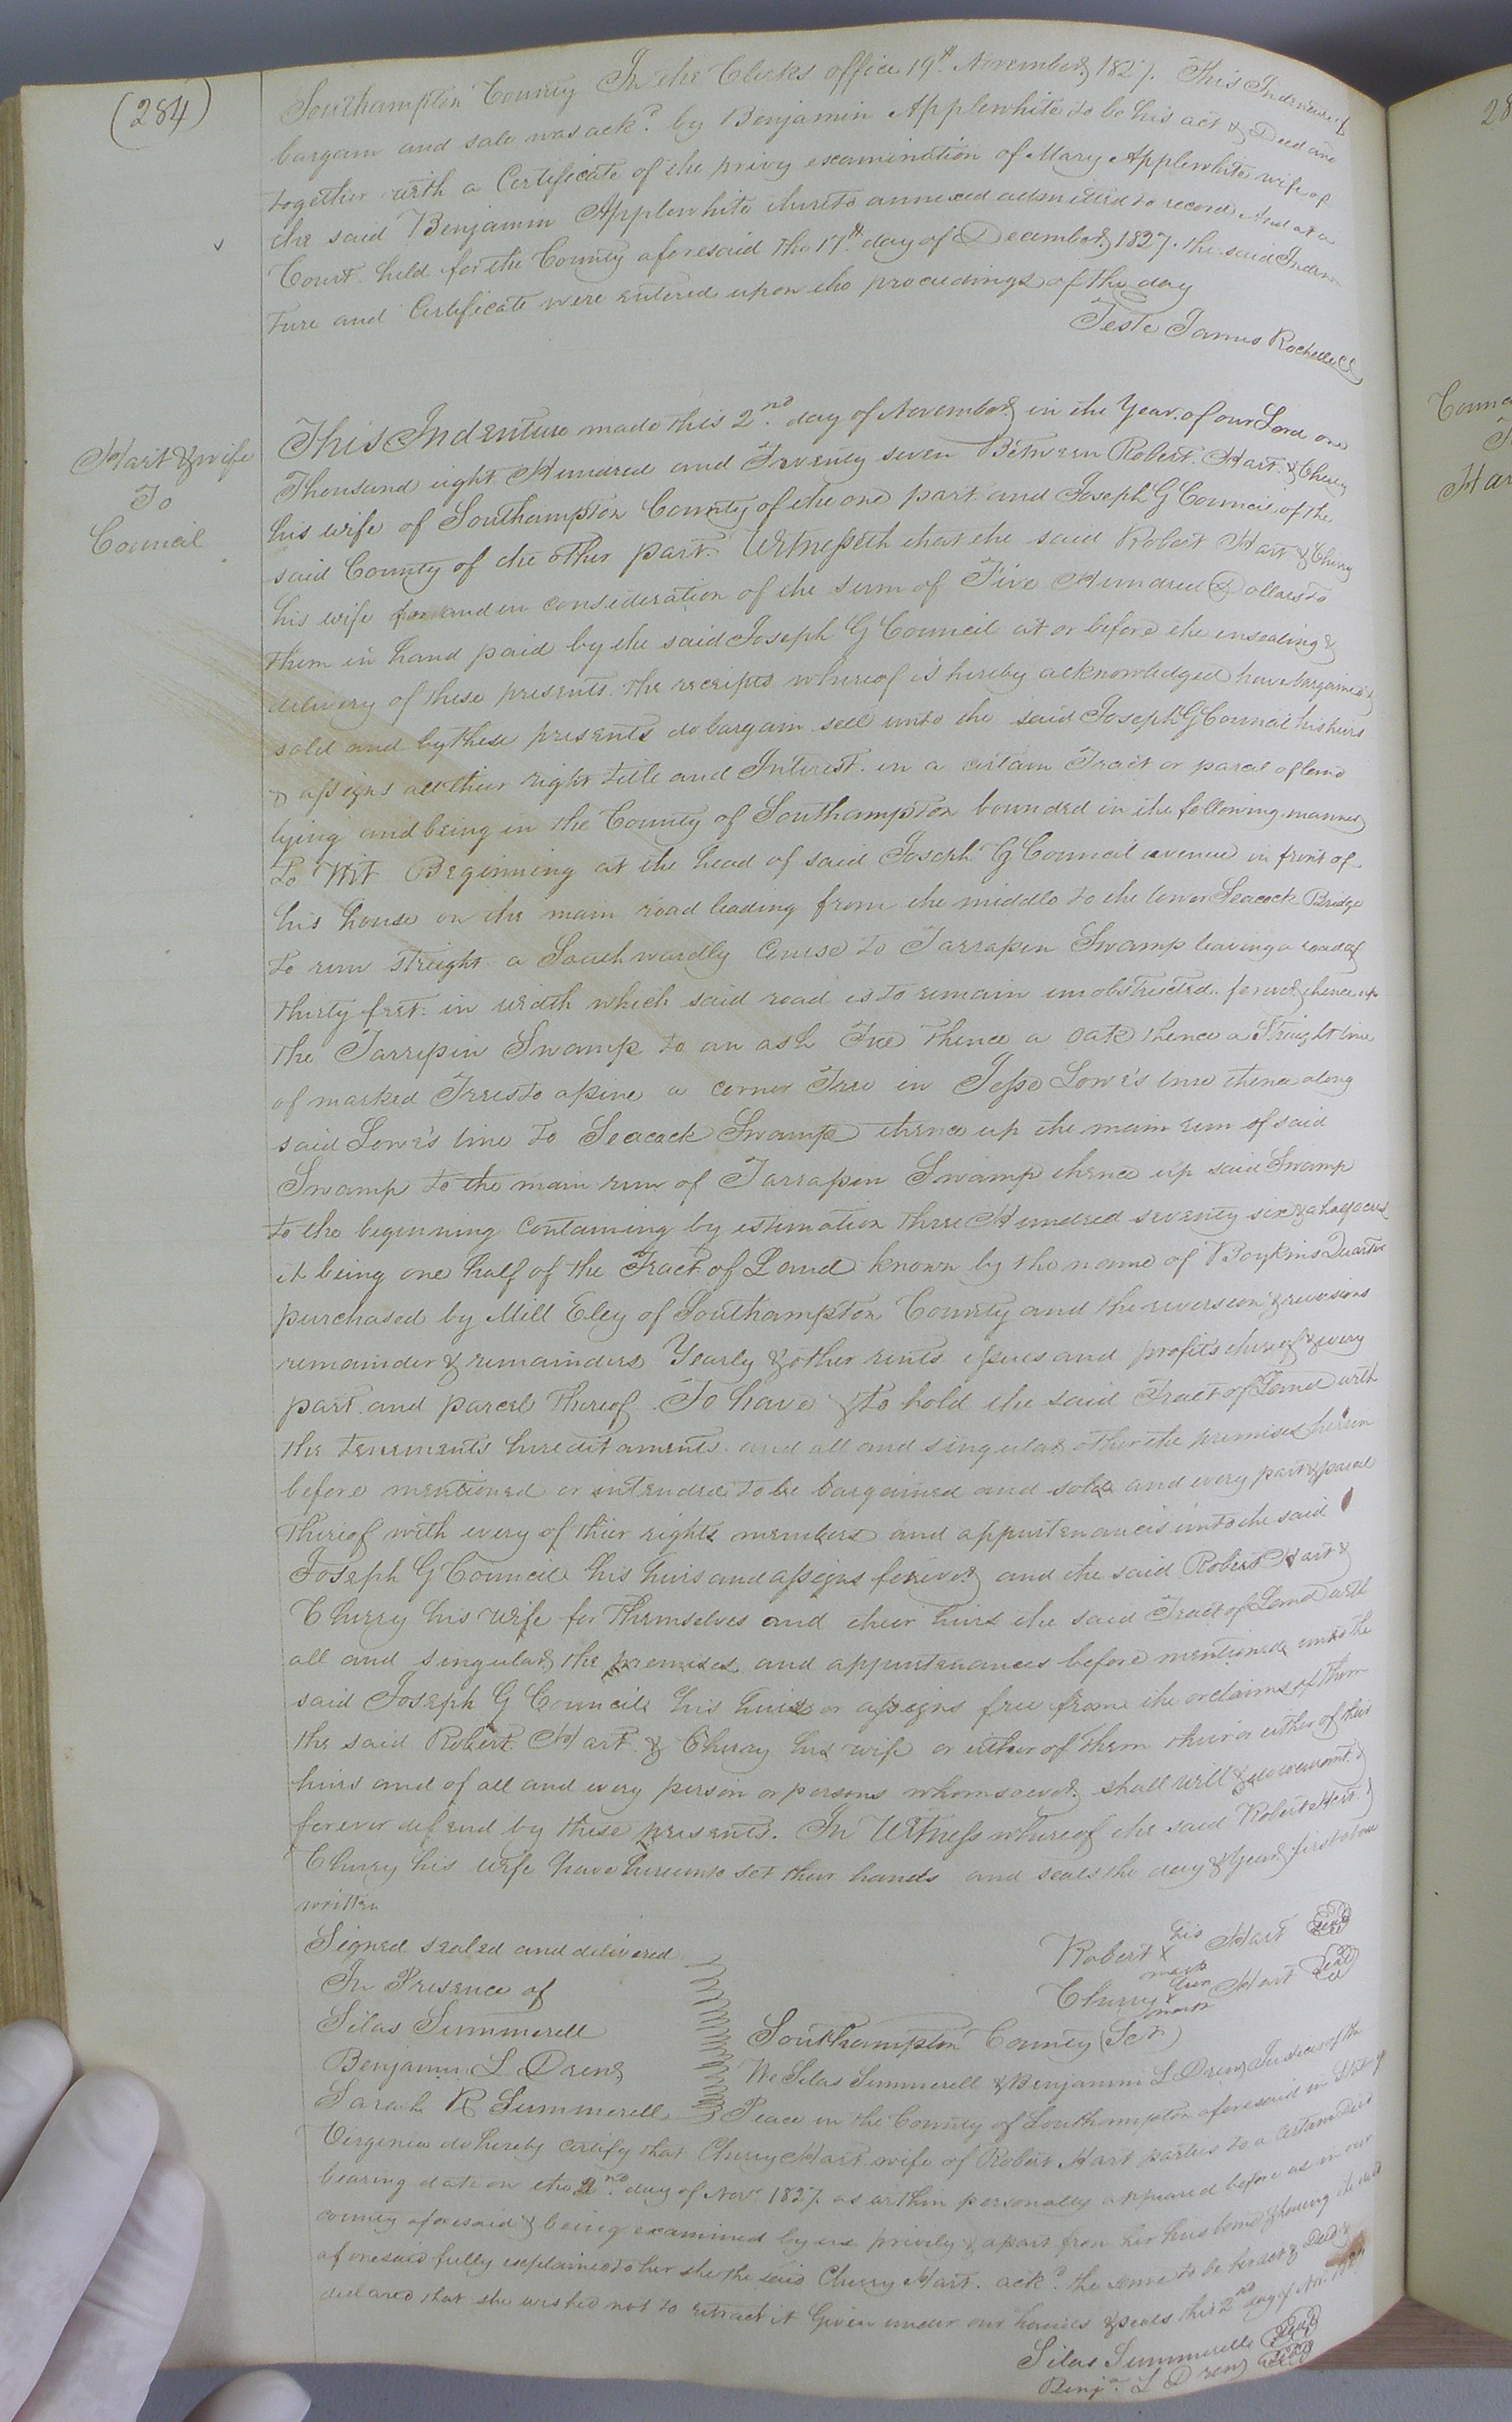 (284)
Southampton County In the Clerks office 19th November 1827. This Indenture of
bargain and sale was ackd. by Benjamin Applewhite to be his act & Deed and
together with a Certificate of the privy examination of Mary Applewhite wife of
the said Benjamin Applewhite thereto annexed admitted to record And at a
Court held for the County aforesaid the 17th day of December 1827. the said Inden
ture and Certificate were entered upon the proceedings of the day
Teste James Rochelle Cl
Hart & wife
To
Council
This Indenture made this 2nd. day of November in the Year of our Lord one
Thousand eight Hundred and Twenty seven Between Robert Hart & Cherry
his wife of Southampton County of the one part and Joseph G Council of the
said County of the other part. Witnesseth that the said Robert Hart & Cherry
his wife for and in consideration of the sum of Five Hundred Dollars to
them in hand paid by the said Joseph G Council at or before the ensealing &
delivery of these presents. the receipts whereof is hereby acknowledged have bargained &
sold and by these presents do bargain sell unto the said Joseph G Council his heirs
& assigns all their right title and Interest in a certain Tract or parcel of land
lying and being in the County of Southampton bounded in the following manner
To Wit Beginning at the head of said Joseph G Council avenue in front of
his house on the main road leading from the middle to the lower Seacock Bridge
to run streight a Southwardly Couse to Tarrapin Swamp leaving a road of
thirty feet in width which said road is to remain unobstructed. forever thence up
the Tarripin Swamp to an ash Tree Thence a Oak thence a Straight line
of marked Trees to a pine a corner Tree in Jesse Lowe's line thence along
said Lowe's line to Seacock Swamp thence up the main run of said
Swamp to the main run of Tarrapin Swamp thence up said Swamp
to the beginning Containing by estimation three Hundred seventy six & a half acres
it being one half of the Tract of Land known by the name of Boykins Quarter
purchased by Mill Eley of Southampton County and the reversion & revisions
remainder & remainders Yearly & other rents issues and profits thereof & every
part and parcel thereof To have & to hold the said Tract of Land with
the tenements hereditaments and all and singular other the premises herein
before mentioned or intended to be bargained and sold and every part & parcel
thereof with every of their rights members and appurtenances unto the said
Joseph G Council his heirs and assigns forever and the said Robert Hart &
Cherry his wife for themselves and their heirs the said Tract of Land with
all and singular the premises and appurtenances before mentioned unto the
said Joseph G Council his heirs or assigns free from the or claims of them
the said Robert Hart & Cherry his wife or either of them their or either of their
heirs and of all and every person or persons whomsoever shall will & do warrant &
forever defend by these presents. In Witness whereof the said Robert Hart &
Cherry his wife have hereunto set their hands and seals the day & Year first above
written
Signed sealed and delivered
In Presence of
Silas Summerell
Benjamin L Drew
Sarah R Summerell
Robert his X mark Hart Seal
Cherry her X mark Hart Seal
Southampton County (Sct)
We Silas Summerell & Benjamin L Drew Justices of the
Peace in the County of Southampton aforesaid in State of
Virginia do hereby certify that Cherry Hart wife of Robert Hart parties to a certain Deed
bearing date on the 2nd. day of Nov. 1827 as within personally appeared before us in our
county aforesaid & being examined by us privily & apart from her husband & having the deed
aforesaid fully explained to her she the said Cherry Hart. ackd. the same to be her act & Deed &
declared that she wished not to retract it Given under our hands & seals this 2nd day of Nov. 1827
Silas Summerell Seal
Benja. L Drew Seal
28